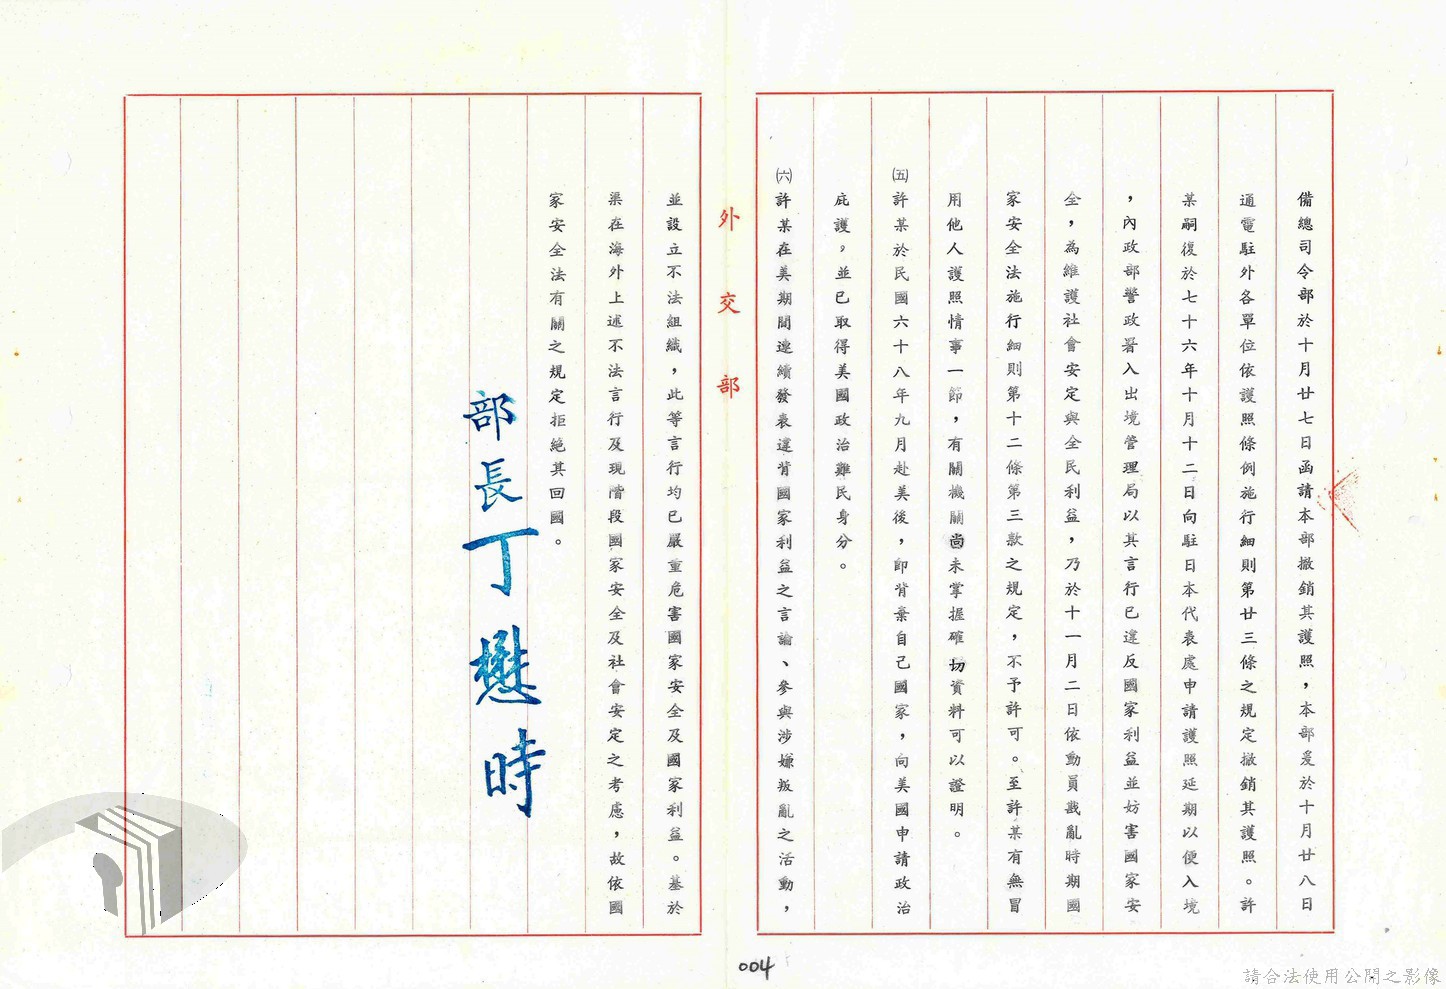 備總司令部於十月廿七日函請本部撤銷其護照，本部爰於十月廿八日
通電駐外各單位依護照條例施行細則第廿三條之規定撤銷其護照。許
某嗣復於七十六年十月十二日向駐日本代表處申請護照延期以便入境
，內政部警政署入出境管理局以其言行已違反國家利益並妨害國家安
全，為維護社會安定與全民利益，乃於十一月二日依動員戡亂時期國
家安全法施行細則第十二條第三款之規定，不予許可。至許某有無冒
用他人護照情事一節，有關機關尚未掌握確切資料可以證明。
㈤許某於民國六十八年九月赴美後，即背棄自己國家，向美國申請政治
庇護，並已取得美國政治難民身分。
㈥許某在美期間連續發表違背國家利益之言論、參與涉嫌叛亂之活動，
外交部
並設立不法組織，此等言行均已嚴重危害國家安全及國家利益。基於
渠在海外上述不法言行及現階段國家安全及社會安定之考慮，故依國
家安全法有關之規定拒絕其回國。
部長丁懋時
004
請合法使用公開之影像